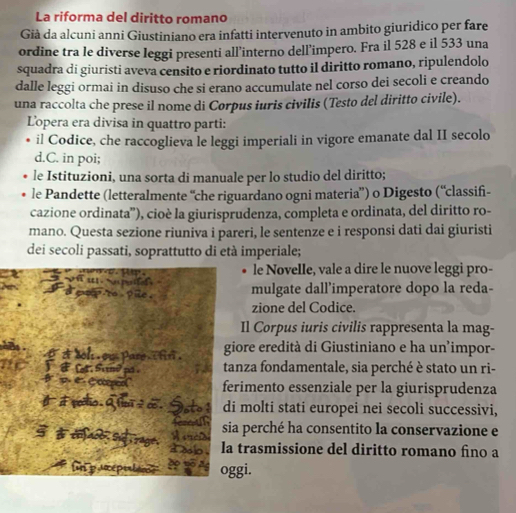 La riforma del diritto romano
Già da alcuni anni Giustiniano era infatti intervenuto in ambito giuridico per fare
ordine tra le diverse leggi presenti all'interno dell'impero. Fra il 528 e il 533 una
squadra di giuristi aveva censito e riordinato tutto il diritto romano, ripulendolo
dalle leggi ormai in disuso che si erano accumulate nel corso dei secoli e creando
una raccolta che prese il nome di Corpus iuris civilis (Testo del diritto civile).
L'opera era divisa in quattro parti:
• il Codice, che raccoglieva le leggi imperiali in vigore emanate dal II secolo
d.C. in poi;
• le Istituzioni, una sorta di manuale per lo studio del diritto;
• le Pandette (letteralmente “che riguardano ogni materia”) o Digesto (“classifi-
cazione ordinata”), cioè la giurisprudenza, completa e ordinata, del diritto ro-
mano. Questa sezione riuniva i pareri, le sentenze e i responsi dati dai giuristi
dei secoli passati, soprattutto di età imperiale;
• le Novelle, vale a dire le nuove leggi pro-
mulgate dall'imperatore dopo la reda-
zione del Codice.
Il Corpus iuris civilis rappresenta la mag-
giore eredità di Giustiniano e ha un'impor-
tanza fondamentale, sia perché è stato un ri-
ferimento essenziale per la giurisprudenza
di molti stati europei nei secoli successivi,
sia perché ha consentito la conservazione e
la trasmissione del diritto romano fino a
oggi.